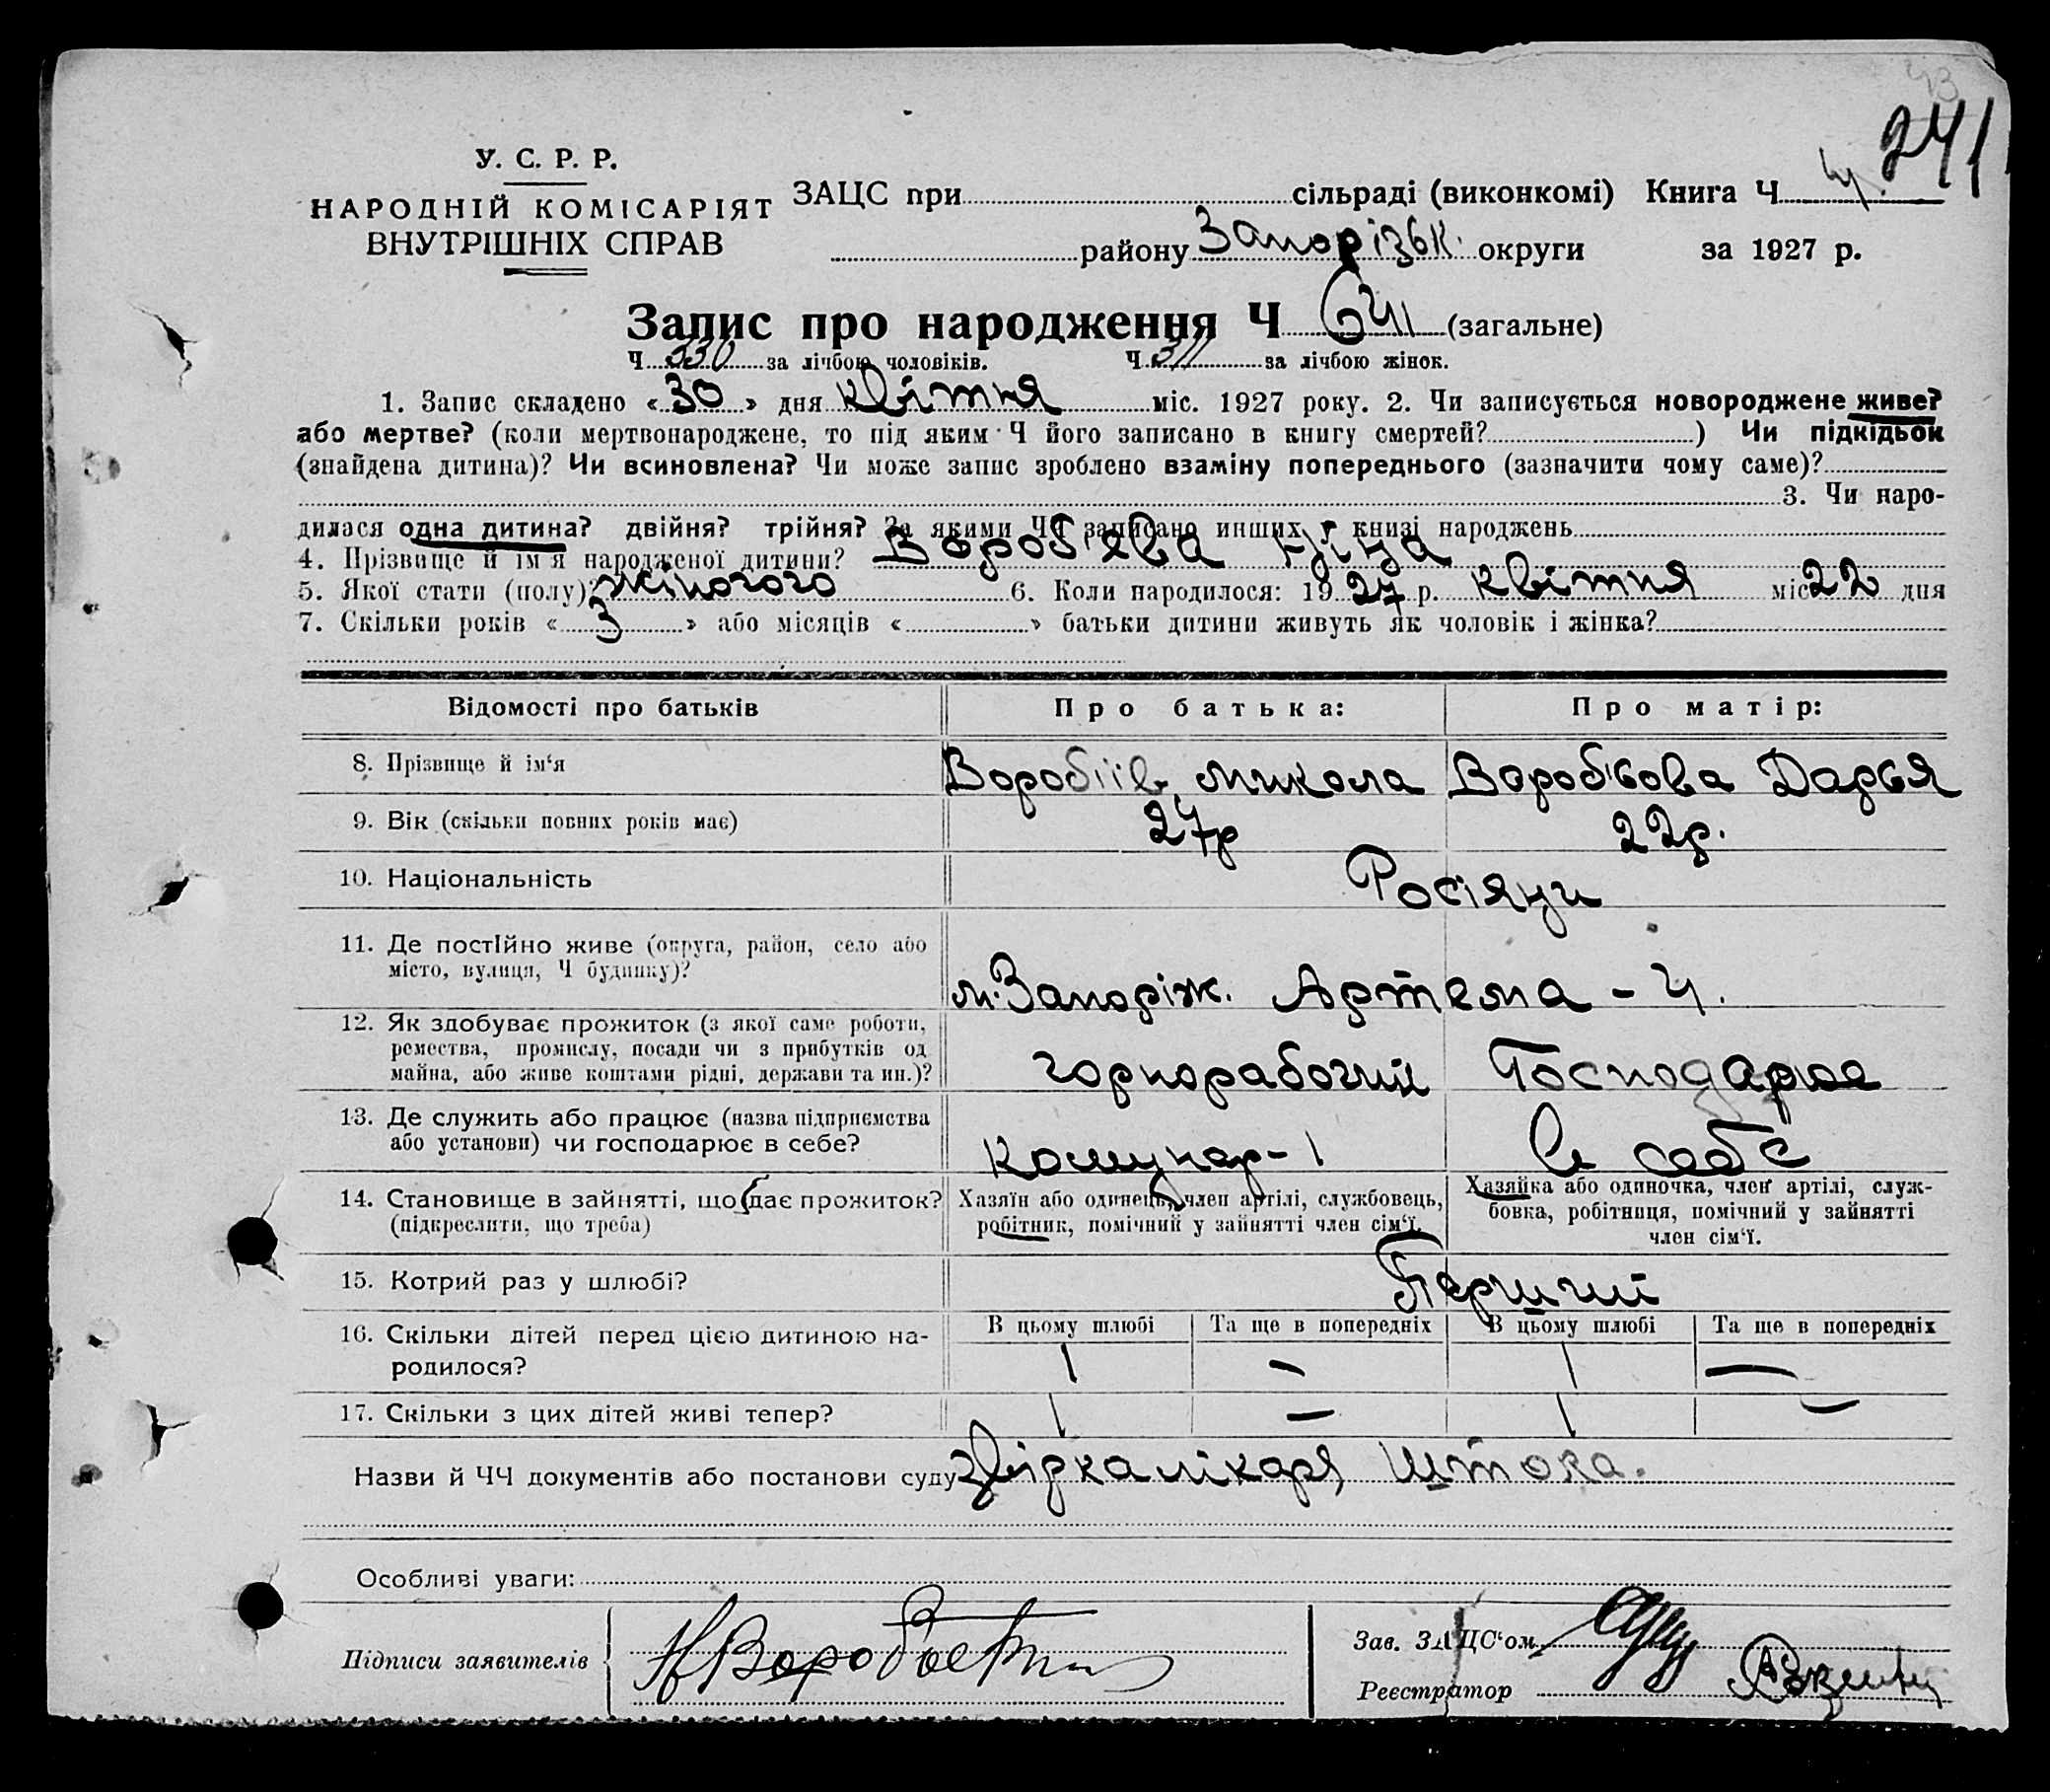 241
У. С. Р. Р.
НАРОДНІЙ КОМІСАРІЯТ
ВНУТРІШНІХ СПРАВ
ЗАЦС при сільраді (виконкомі) Книга Ч
району Запорізьк. округи за 1927 р.
Запис про народження Ч 641 (загальне)
Ч 330 за лічбою чоловіків. Ч 311 за лічбою жінок.
1. Запис складено «30» дня квітня міс. 1927 року. 2. Чи записується новороджене живе?
або мертве? (коли мертвонароджене, то під яким Ч його записано в книгу смертей? ) Чи підкідьок
(знайдена дитина)? Чи всиновлена? Чи може запис зроблено взаміну попереднього (зазначити чому саме)?
3. Чи наро-
дилася одна дитина? двійня? трійня? За якими ЧЧ записано инших у книзі народжень
4. Прізвище й ім'я народженої дитини? Вороб'єва Ніна
5. Якої стати (полу)? жіночого 6. Коли народилося: 1927 р. квітня міс 22 дня
7. Скільки років «3» або місяців « » батьки дитини живуть як чоловік і жінка?
Відомості про батьків Про батька: Про матір:
8. Прізвище й ім'я Воробіїв Микола Вороб'йова Дарья
9. Вік (скільки повних років має) 27р 22р.
10. Національність Росіяни
11. Де постійно живе (округа, район, село або
місто, вулиця, Ч будинку)? м. Запоріж. Артема - 4.
12. Як здобуває прожиток (з якої саме роботи,
ремества, промислу, посади чи з прибутків од
майна, або живе коштами рідні, держави та ин.)? горнорабочий Господарює
13. Де служить або працює (назва підприємства
або установи) чи господарює в себе? Комунар-1 В себе
14. Становище в зайнятті, що дає прожиток?
(підкреслити, що треба)
Хазяїн або одинець, член артілі, службовець,
робітник, помічний у зайнятті член сім'ї.
Хазяйка або одиночка, член артілі, служ-
бовка, робітниця, помічний у зайнятті
член сім'ї.
15. Котрий раз у шлюбі? Перший
16. Скільки дітей перед цією дитиною на-
родилося?
В цьому шлюбі Та ще в попередніх В цьому шлюбі Та ще в попередніх
1 - 1 -
17. Скільки з цих дітей живі тепер? 1 - 1 -
Назви й ЧЧ документів або постанови суду звідка лікаря Штока.
Особливі уваги:
Підписи заявителів
Зав. ЗАЦС'ом
Реєстратор